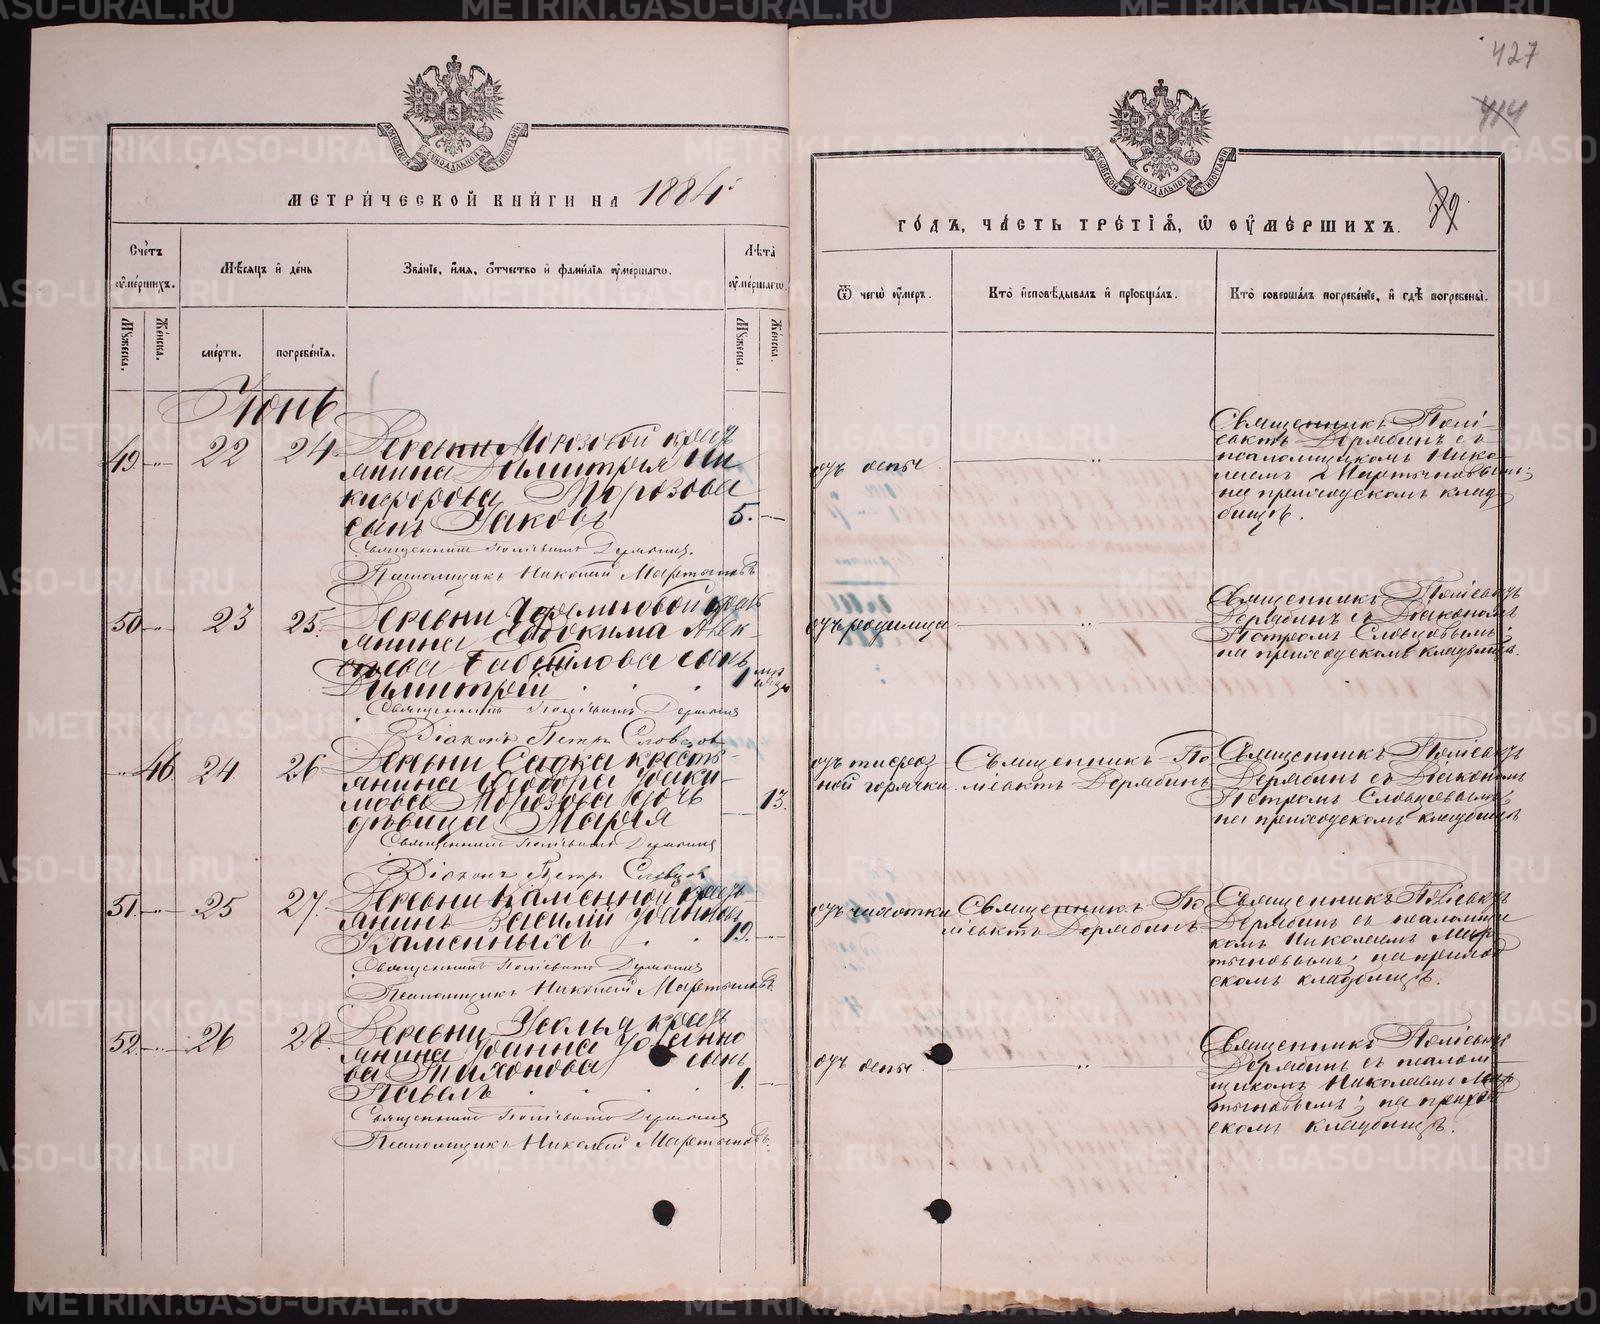 427
414
39
МЕТРИЧЕСКОЙ КНИГИ НА 1884
ГОДЪ, ЧАСТЬ ТРЕТІЯ, Ѡ ОУМЕРШИХЪ.
Счетъ оумершихъ.
Мѣсяцъ и день
Званіе, имя, отчество и фамилія оумершагѡ.
Лѣта оумершагѡ.
Мужеска.
Женска.
смерти.
погребенія.
Мужеска.
Женска.
Ѿ чегѡ оумеръ.
Кто исповѣдывалъ и пріобщалъ.
Кто совершалъ погребеніе, и гдѣ погребены.
Іюнь
49 22 24.
Деревни Морозовой крестъ
янина Димитрія Ни
кифорова Морозова
сынъ Іаковъ 5.
Священникъ Поліевктъ Дерябинъ.
Псаломщикъ Николай Мартыновъ
отъ оспы
Священникъ Полі-
евктъ Дерябинъ съ
псаломщикомъ Нико-
лаемъ Мартыновымъ;
на приходскомъ клад
бищѣ.
50 23 25.
Деревни крест
янина Евдокима Алек
сѣева сынъ
Димитрій 1
Священникъ Поліевктъ Дерябинъ
Діаконъ Петръ Словцовъ
отъ родимца
Священникъ Поліевктъ
Дерябинъ съ Діакономъ
Петромъ Словцовымъ;
на приходскомъ кладбищѣ.
46 24 26
Деревни Садка кресть
янина Ѳеодора Іоаки
мова Морозова дочь
дѣвица Марія 13.
Священникъ Поліевктъ Дерябинъ
Діаконъ Петръ Словцовъ
отъ тифоз
ной горячки
Священникъ По
ліевктъ Дерябинъ
Священникъ Поліевктъ
Дерябинъ съ Діакономъ
Петромъ Словцовымъ;
на приходскомъ кладбищѣ
51. 25 27.
Деревни Каменной крест
янинъ Василій Іоанновъ
Каменныхъ 19.
Священникъ Поліевктъ Дерябинъ
Псаломщикъ Николай Мартыновъ.
отъ чахотки
Священникъ По
ліевктъ Дерябинъ
Священникъ Поліевктъ
Дерябинъ съ псаломщи
комъ Николаемъ Мар
тыновымъ; на приход
скомъ кладбищѣ.
52. 26 28.
Деревни Усолья крест
янина Іоанна Іоанно
ва Тихонова сынъ
Павелъ 1.
Священникъ Поліевктъ Дерябинъ
Псаломщикъ Николай Мартыновъ.
отъ оспы
Священникъ Поліевктъ
Дерябинъ съ псалом
щикомъ Николаемъ Мар
тыновымъ; на приход
скомъ кладбищѣ.
METRIKI.GASO-URAL.RU